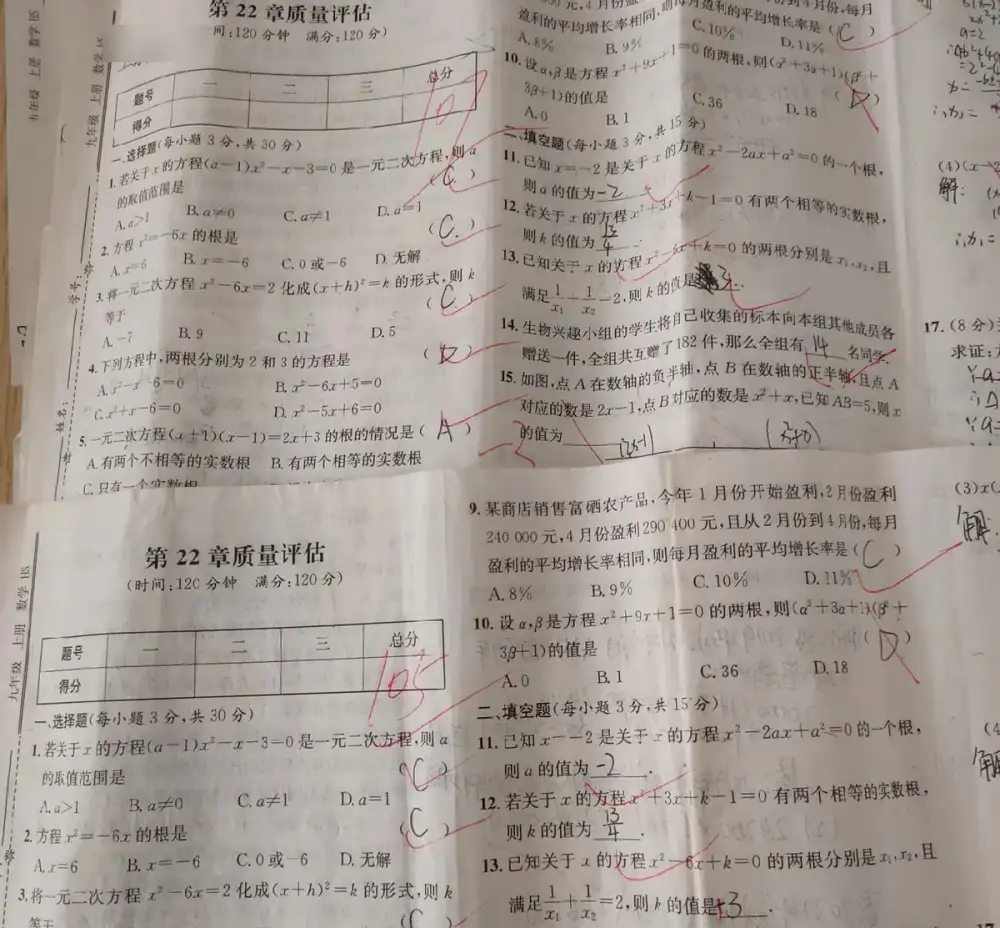 第 22 章质量评估
间:120 分钟 满分:120 分)
九年级 上册 数学 HS
题号 一 二 三 总分
得分
107
一、选择题(每小题 3 分,共 30 分)
1. 若关于 x 的方程(a-1)x²-x-3=0 是一元二次方程,则 a
的取值范围是 (C)
A. a>1 B. a≠0 C. a≠1 D. a=1
2. 方程 x²=-6x 的根是 (C.)
A. x=6 B. x=-6 C. 0 或-6 D. 无解
3. 将一元二次方程 x²-6x=2 化成(x+h)²=k 的形式,则 k
等于 (C.)
A. -7 B. 9 C. 11 D. 5
4. 下列方程中,两根分别为 2 和 3 的方程是 (D)
A. x²-x-6=0 B. x²-6x+5=0
C. x²+x-6=0 D. x²-5x+6=0
5. 一元二次方程(x+1)(x-1)=2x+3 的根的情况是(A)
A. 有两个不相等的实数根 B. 有两个相等的实数根
C. 只有一个实数根
学号:
姓名:
盈利的平均增长率相同,则每月盈利的平均增长率是(C)
A. 8% B. 9% C. 10% D. 11%
10. 设 α,β是方程 x²+9x+1=0 的两根,则(α²+3α+1)(β²+
3β+1)的值是 (D)
A. 0 B. 1 C. 36 D. 18
二、填空题(每小题 3 分,共 15 分)
11. 已知 x=-2 是关于 x 的方程 x²-2ax+a²=0 的一个根,
则 a 的值为 -2 .
12. 若关于 x 的方程 x²+3x+k-1=0 有两个相等的实数根,
则 k 的值为 13/4 .
13. 已知关于 x 的方程 x²-6x+k=0 的两根分别是 x₁,x₂,且
满足 1/x₁+1/x₂=2,则 k 的值是 3 .
14. 生物兴趣小组的学生将自己收集的标本向本组其他成员各
赠送一件,全组共互赠了 182 件,那么全组有 14 名同学.
15. 如图,点 A 在数轴的负半轴,点 B 在数轴的正半轴,且点 A
对应的数是 2x-1,点 B 对应的数是 x²+x,已知 AB=5,则 x
的值为
-3
17. (8 分)
求证:
第 22 章质量评估
(时间:120 分钟 满分:120 分)
九年级 上册 数学 HS
题号 一 二 三 总分
得分
105
一、选择题(每小题 3 分,共 30 分)
1. 若关于 x 的方程(a-1)x²-x-3=0 是一元二次方程,则 a
的取值范围是 (C)
A. a>1 B. a≠0 C. a≠1 D. a=1
2. 方程 x²=-6x 的根是 (C)
A. x=6 B. x=-6 C. 0 或-6 D. 无解
3. 将一元二次方程 x²-6x=2 化成(x+h)²=k 的形式,则 k
等于 (C
9. 某商店销售富硒农产品,今年 1 月份开始盈利,2 月份盈利
240 000 元,4 月份盈利 290 400 元,且从 2 月份到 4 月份,每月
盈利的平均增长率相同,则每月盈利的平均增长率是(C)
A. 8% B. 9% C. 10% D. 11%
10. 设 α,β是方程 x²+9x+1=0 的两根,则(α²+3α+1)(β²+
3β+1)的值是 (D)
A. 0 B. 1 C. 36 D. 18
二、填空题(每小题 3 分,共 15 分)
11. 已知 x=-2 是关于 x 的方程 x²-2ax+a²=0 的一个根,
则 a 的值为 -2 .
12. 若关于 x 的方程 x²+3x+k-1=0 有两个相等的实数根,
则 k 的值为 13/4 .
13. 已知关于 x 的方程 x²-6x+k=0 的两根分别是 x₁,x₂,且
满足 1/x₁+1/x₂=2,则 k 的值是 3 .